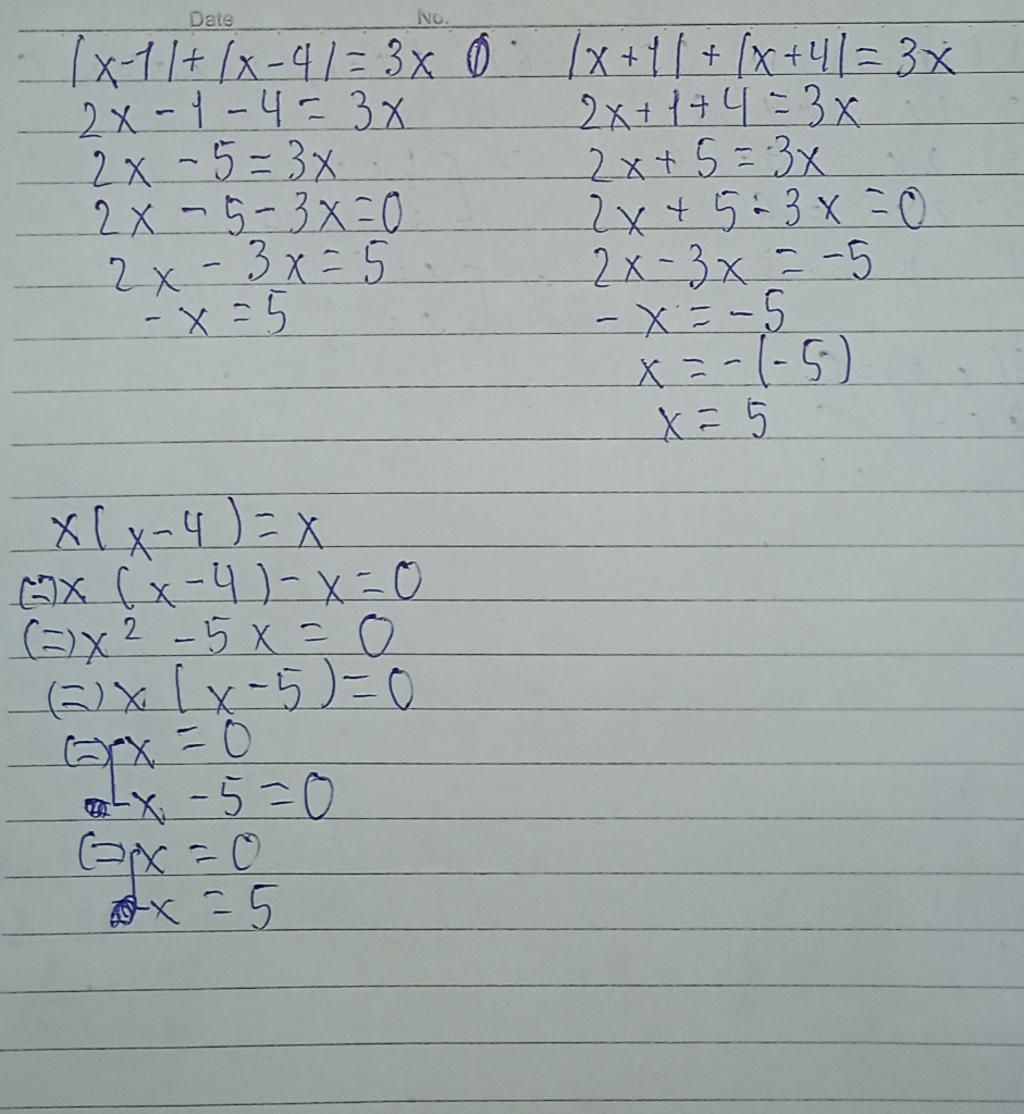 Date No.
|x-1|+|x-4|=3x
2x-1-4=3x
2x-5=3x
2x-5-3x=0
2x-3x=5
-x=5
|x+1|+|x+4|=3x
2x+1+4=3x
2x+5=3x
2x+5-3x=0
2x-3x=-5
-x=-5
x=-(-5)
x=5
x(x-4)=x
(=)x(x-4)-x=0
(=)x²-5x=0
(=)x(x-5)=0
(=)[x=0
x-5=0
(=)[x=0
x=5